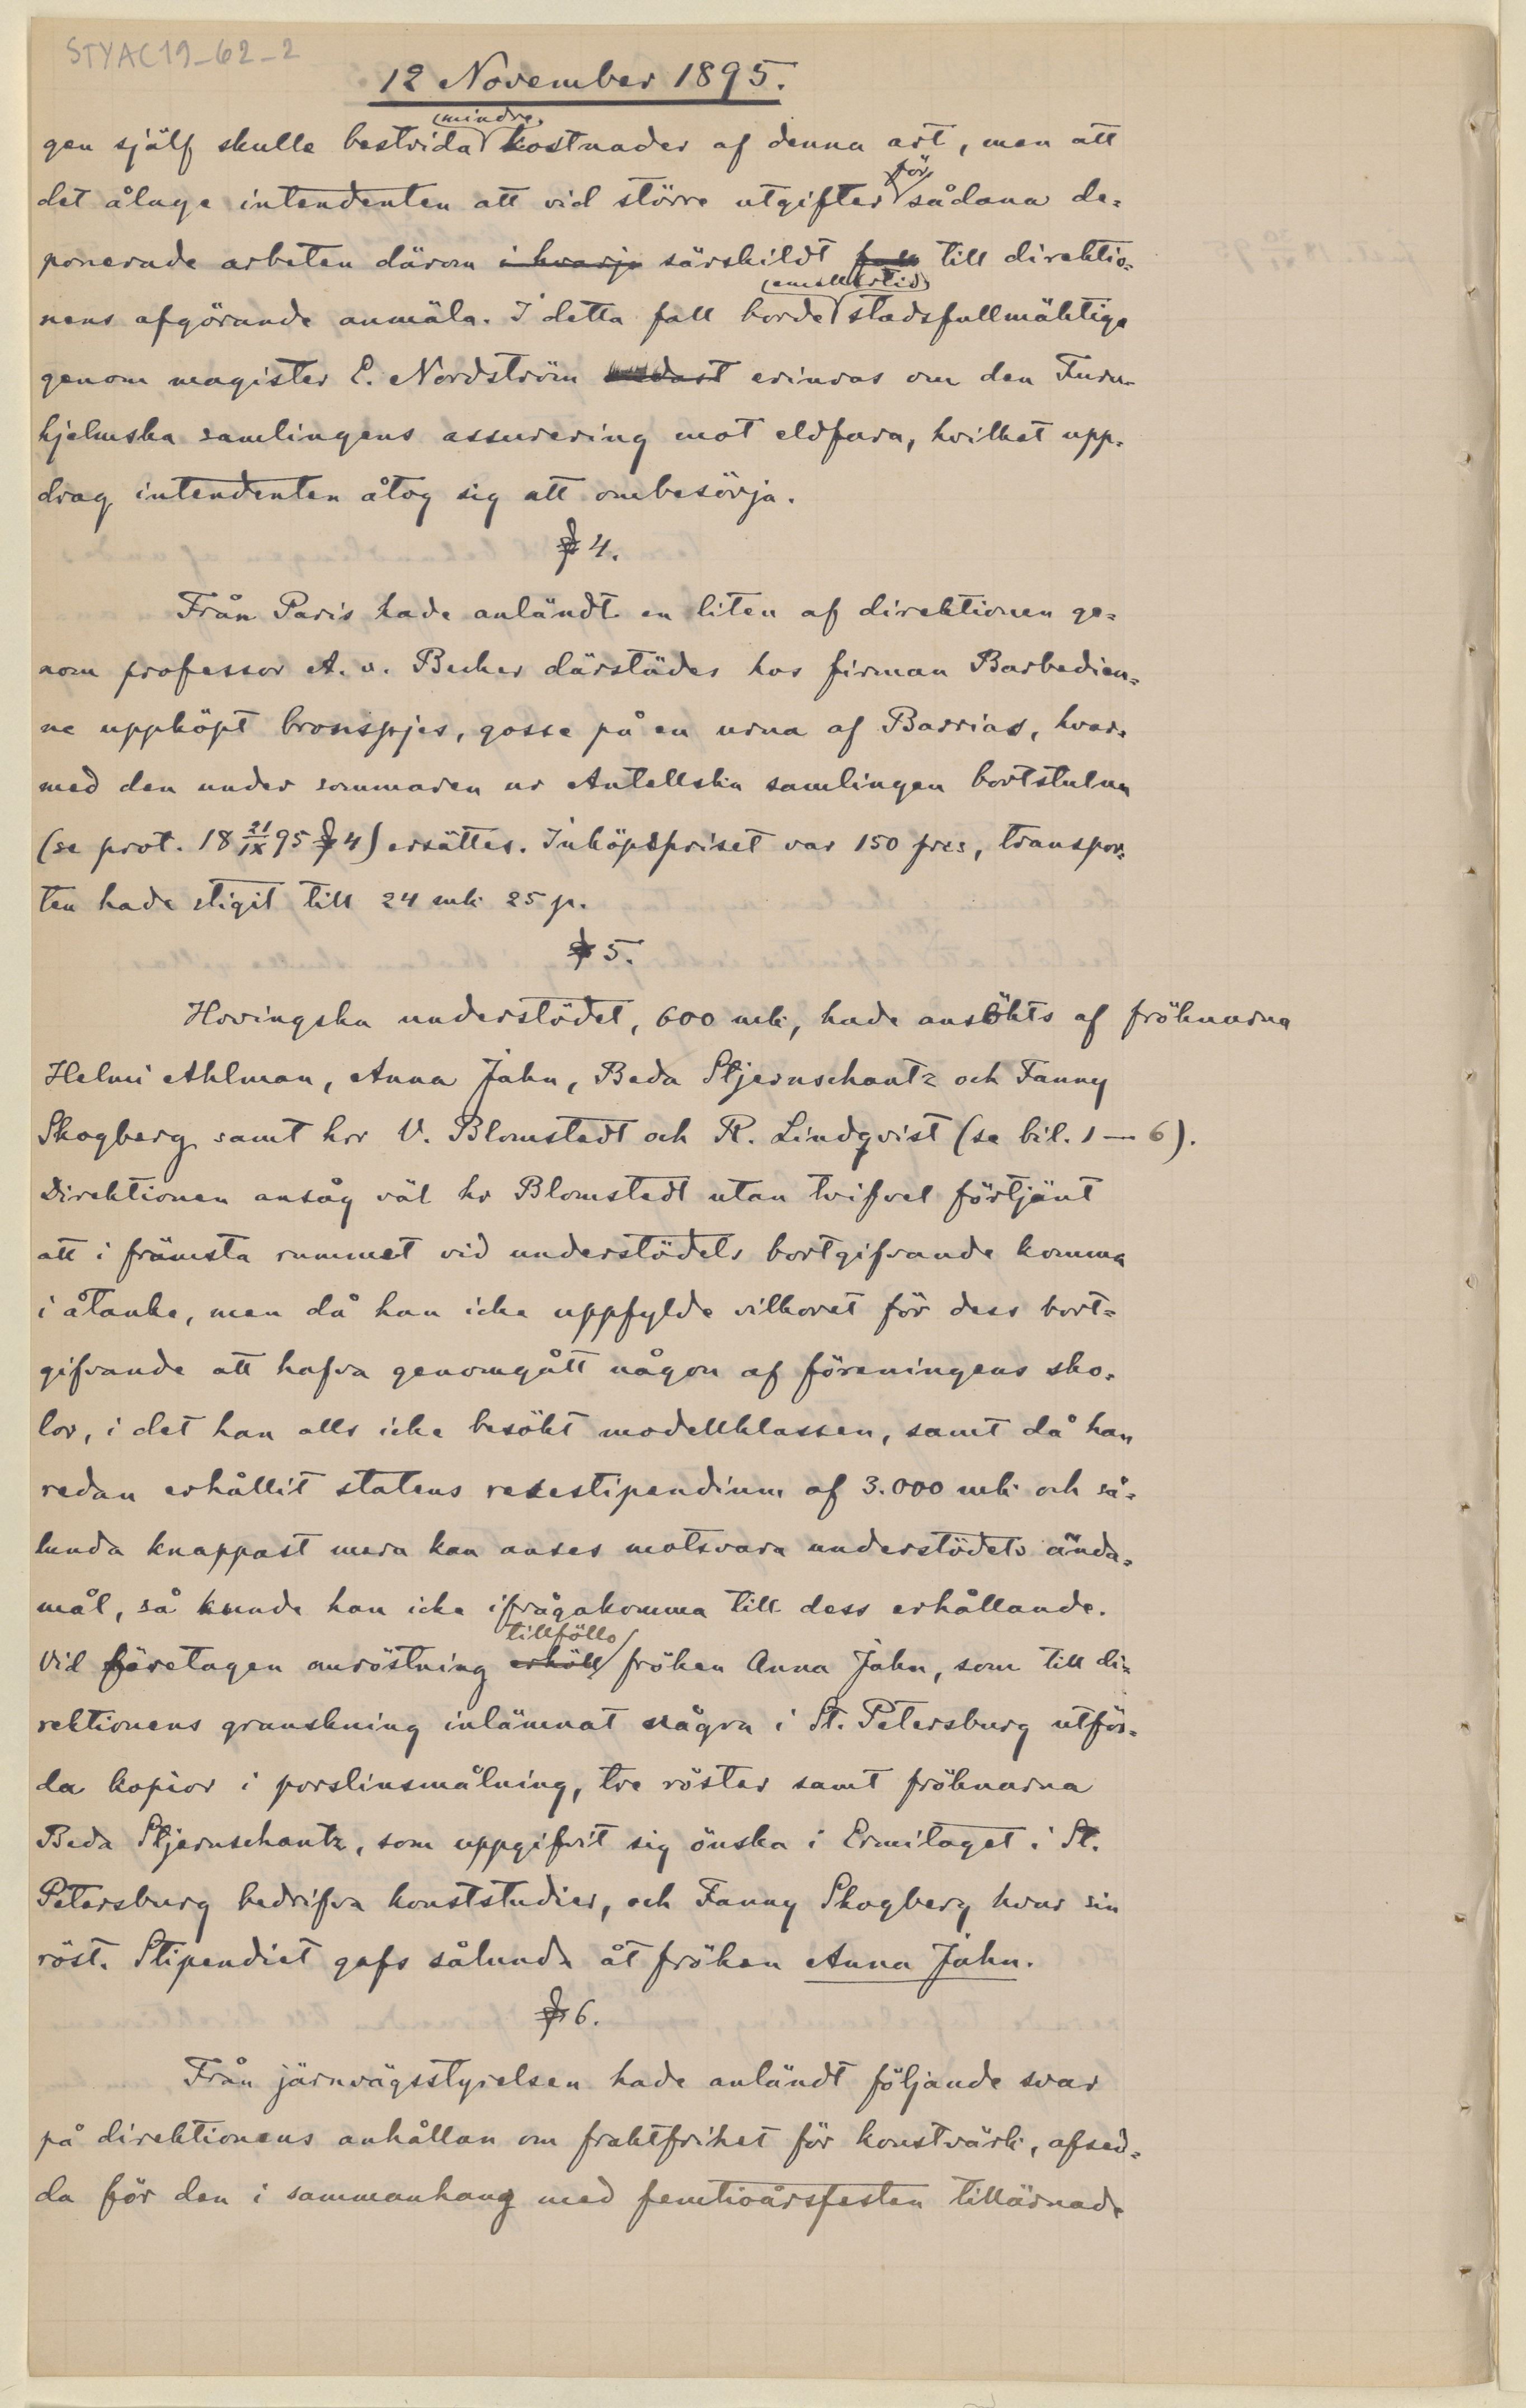 STYAC19_62_2
12 November 1895.
gen själf skulle bestrida mindre kostnader af denna art, men att
det åluge intendenten att vid större utgifter för sådana de-
ponerade arbeten därom i hvarje särskildt fall till direktio-
nens afgörande anmäla. I detta fall borde emellertid stadsfullmäktige
genom magister E. Nordström erinras om den Furu-
hjelmska samlingens assurering mot eldfara, hvilket upp-
drag intendenten åtog sig att ombesörja.
§ 4.
Från Paris hade anländt en liten af direktionen ge-
nom professor A. v. Becker därstädes hos firman Barbedien-
ne uppköpt bronspjes, gosse på en urna af Barrias, hvar-
med den under sommaren ur Antellska samlingen bortstulna
(se prot. 18 21/IX 95 § 4) ersättes. Inköpspriset var 150 frcs, transpor-
ten hade stigit till 24 mk 25 p.
§ 5.
Hovingska understödet, 600 mk, hade ansökts af fröknarna
Helmi Ahlman, Anna Jahn, Beda Stjernschantz och Fanny
Skogberg samt hrr V. Blomstedt och R. Lindqvist (se bil. 1 — 6).
Direktionen ansåg väl hr Blomstedt utan tvifvel förtjänt
att i främsta rummet vid understödets bortgifvande komma
i åtanke, men då han icke uppfylde vilkoret för dess bort-
gifvande att hafva genomgått någon af föreningens sko-
lor, i det han alls icke besökt modellklassen, samt då han
redan erhållit statens resestipendium af 3.000 mk och så-
lunda knappast mera kan anses motsvara understödets ända-
mål, så kunde han icke ifrågakomma till dess erhållande.
Vid företagen omröstning erhöll tillföllo fröken Anna Jahn, som till di-
rektionens granskning inlämnat några i St. Petersburg utför-
da kopior i porslinsmålning, tre röster samt fröknarna
Beda Stjernschantz, som uppgifvit sig önska i Ermitaget i St.
Petersburg bedrifva konststudier, och Fanny Skogberg hvar sin
röst. Stipendiet gafs sålunda åt fröken Anna Jahn.
§ 6.
Från järnvägsstyrelsen hade anländt följande svar
på direktionens anhållan om fraktfrihet för konstvärk, afsed-
da för den i sammanhang med femtioårsfesten tillärnade